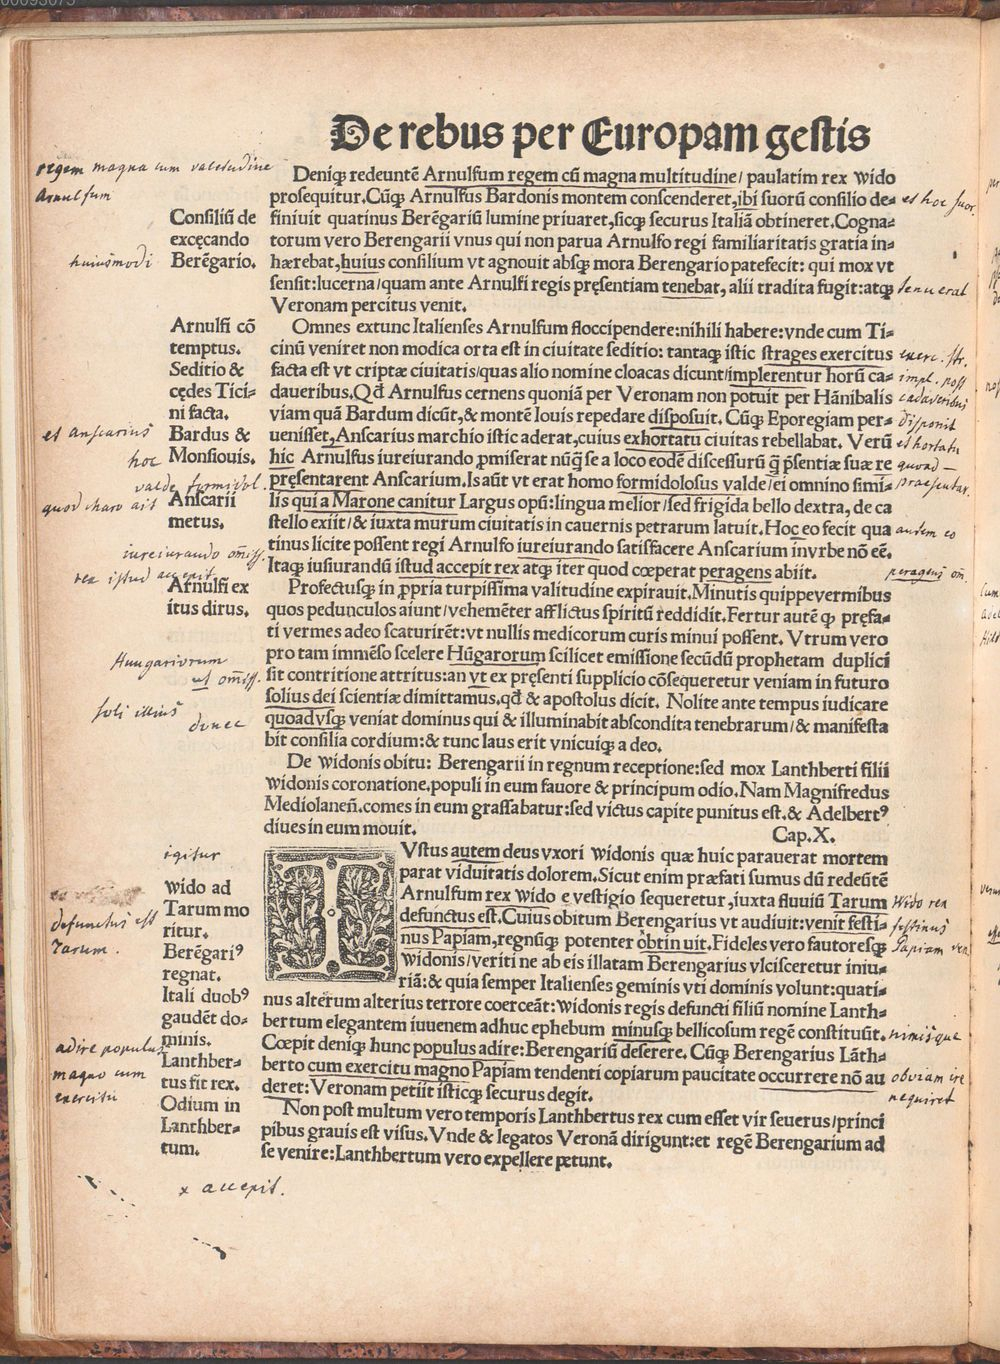 00093075
De rebus per Europam gestis
Deniqꝫ redeuntē Arnulfum regem cū magna multitudine/ paulatim rex wido
prosequitur.Cūqꝫ Arnulfus Bardonis montem conscenderet,ibi suorū consilio de⸗
finiuit quatinus Berēgariū lumine priuaret,sicqꝫ securus Italiā obtineret.Cogna⸗
torum vero Berengarii vnus qui non parua Arnulfo regi familiaritatis gratia in⸗
hærebat,huius consilium vt agnouit absqꝫ mora Berengario patefecit: qui mox vt
sensit:lucerna/quam ante Arnulfi regis pręsentiam tenebat, alii tradita fugit:atqꝫ
Veronam percitus venit.
Omnes extunc Italienses Arnulfum floccipendere:nihili habere:vnde cum Ti⸗
cinū veniret non modica orta est in ciuitate seditio: tantaqꝫ istic strages exercitus
facta est vt criptæ ciuitatis/quas alio nomine cloacas dicunt/implerentur horū ca⸗
daueribus.Qđ Arnulfus cernens quoniā per Veronam non potuit per Hānibalis
viam quā Bardum dicūt,& montē Iouis repedare disposuit. Cūqꝫ Eporegiam per⸗
uenisset,Anscarius marchio istic aderat,cuius exhortatu ciuitas rebellabat. Verū
hic Arnulfus iureiurando ꝓmiserat nūq̄ se a loco eodē discessurū q̄ p̄sentiæ suæ re
pręsentarent Anscarium.Is aūt vt erat homo formidolosus valde/ei omnino simi⸗
lis qui a Marone canitur Largus opū:lingua melior/sed frigida bello dextra, de ca
stello exiit/& iuxta murum ciuitatis in cauernis petrarum latuit.Hoc eo fecit qua
tinus licite possent regi Arnulfo iureiurando satisfacere Anscarium invrbe nō eē.
Itaqꝫ iusiurandū istud accepit rex atqꝫ iter quod cœperat peragens abiit.
Profectusqꝫ in ꝓpria turpissima valitudine expirauit.Minutis quippevermibus
quos pedunculos aiunt/vehemēter afflictus spiritū reddidit.Fertur autē ꝙ pręfa⸗
ti vermes adeo scaturirēt:vt nullis medicorum curis minui possent. Vtrum vero
pro tam immēso scelere Hūgarorum scilicet emissione secūdū prophetam duplici
sit contritione attritus:an vt ex pręsenti supplicio cōsequeretur veniam in futuro
solius dei scientiæ dimittamus.qđ & apostolus dicit. Nolite ante tempus iudicare
quoadvsqꝫ veniat dominus qui & illuminabit abscondita tenebrarum/& manifesta
bit consilia cordium:& tunc laus erit vnicuiqꝫ a deo.
De widonis obitu: Berengarii in regnum receptione:sed mox Lanthberti filii
widonis coronatione.populi in eum fauore & principum odio.Nam Magnifredus
Mediolaneñ.comes in eum grassabatur:sed victus capite punitus est.& Adelbertꝰ
diues in eum mouit.
Cap.X.
IVstus autem deus vxori widonis quæ huic parauerat mortem
parat viduitatis dolorem.Sicut enim præfati sumus dū redeūtē
Arnulfum rex wido e vestigio sequeretur,iuxta fluuiū Tarum
defunctus est.Cuius obitum Berengarius vt audiuit:venit festi⸗
nus Papiam,regnūqꝫ potenter obtinuit.Fideles vero fautoresqꝫ
widonis/veriti ne ab eis illatam Berengarius vlcisceretur iniu⸗
riā:& quia semper Italienses geminis vti dominis volunt:quati⸗
nus alterum alterius terrore coerceāt:widonis regis defuncti filiū nomine Lanth⸗
bertum elegantem iuuenem adhuc ephebum minusqꝫ bellicosum regē constituūt.
Cœpit deniqꝫ hunc populus adire:Berengariū deserere. Cūqꝫ Berengarius Lāth⸗
berto cum exercitu magno Papiam tendenti copiarum paucitate occurrere nō au
deret:Veronam petiit isticqꝫ securus degit.
Non post multum vero temporis Lanthbertus rex cum esset vir seuerus/princi
pibus grauis est visus.Vnde & legatos Veronā dirigunt:et regē Berengarium ad
se venire:Lanthbertum vero expellere petunt.
regem magna cum valetudine
Arnulfum
Consiliū de
excęcando
Berēgario.
huiusmodi
Arnulfi cō
temptus.
Seditio &
cędes Tici⸗
ni facta.
Bardus &
Monsiouis.
et Anscarius
hoc
valde formidol.
quod charo ait
Anscarii
metus.
iureiurando om̄iss.
rex istud accepit
Arnulfi ex
itus dirus.
Hungariorum
ut om̄iss.
soli illius
donec
igitur
wido ad
Tarum mo
ritur.
defunctus est
Tarum
Berēgariꝰ
regnat.
Itali duobꝰ
gaudēt do⸗
minis.
Lanthber⸗
tus fit rex.
adire populus
magno cum
exercitu
Odium in
Lanthber⸗
tum.
x accepit.
et hoc suor.
tenuerat
exerc. str.
impl. poss
cadaveribus
disponit
et hortatu
quoad —
praesentar.
autem eo
peragens om̄.
Wido rex
festinus
Papiam ven.
nimisque
obviam ire
nequiret